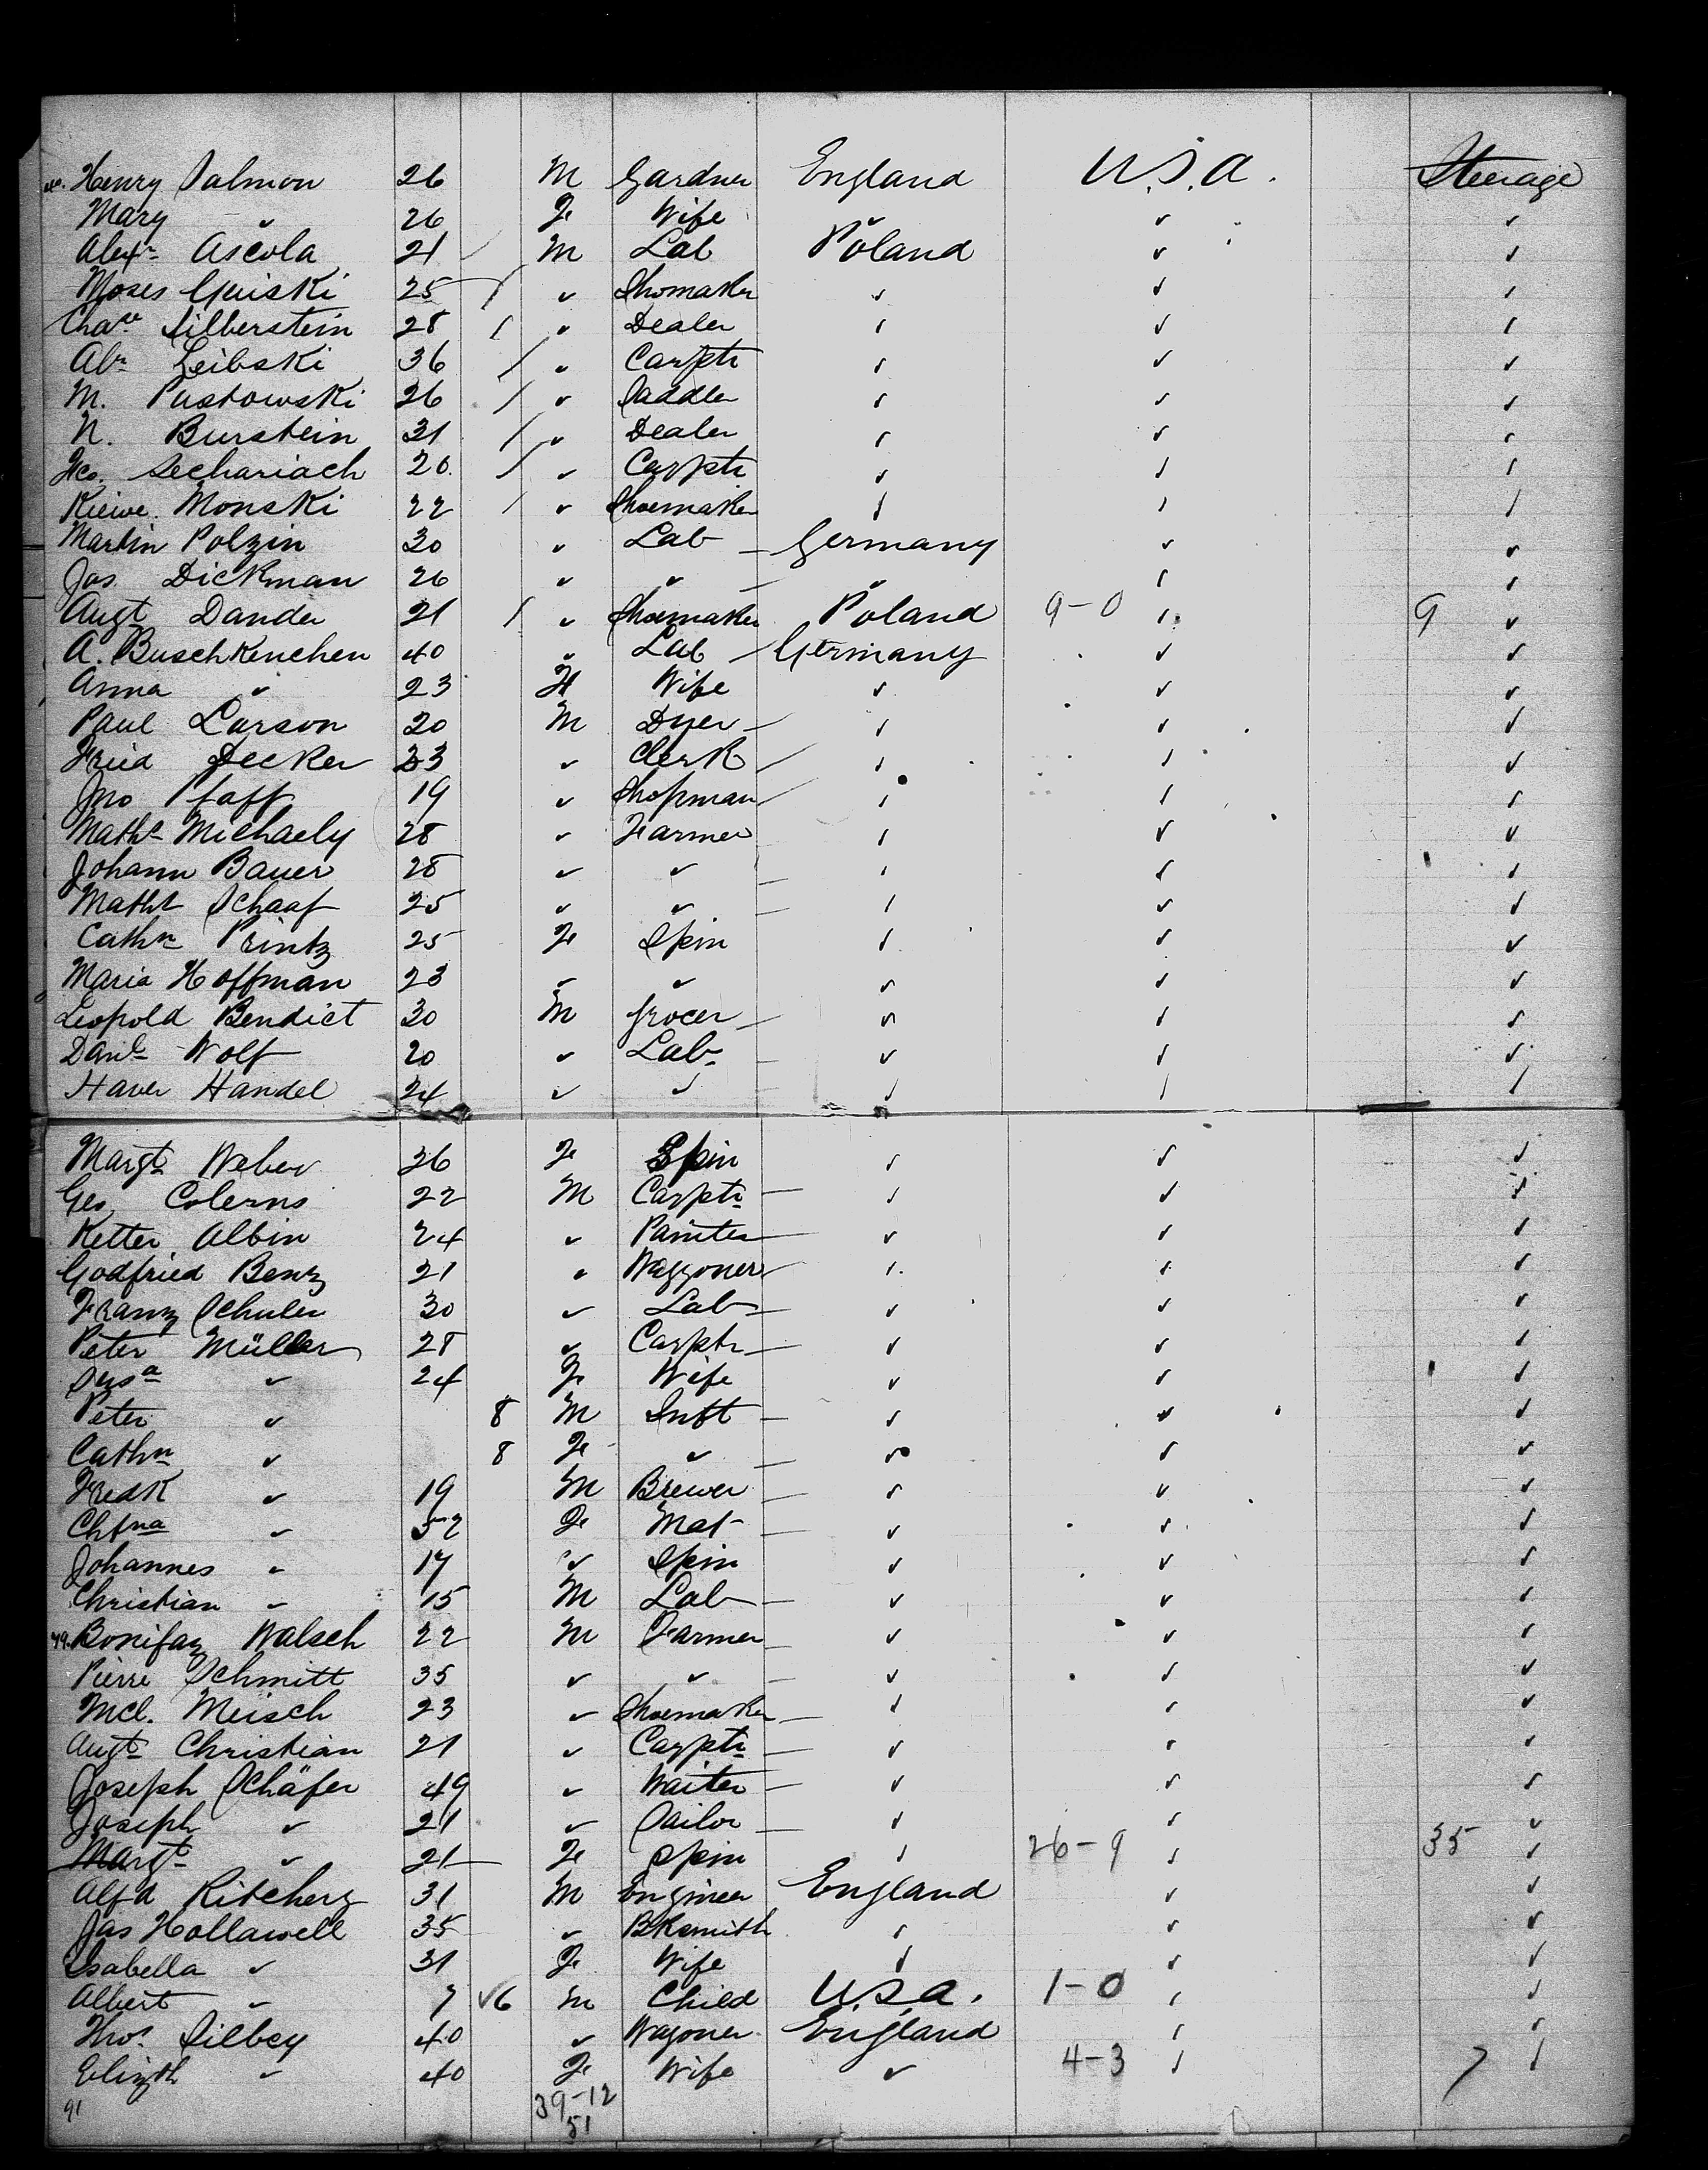 Henry Salmon 26 M Gardner England U.S.A. Steerage
Mary " 26 Fe Wife " " "
Alexr Ascola 21 M Lab Poland " "
Moses Guiski 25 / " Shomaker " " "
Silberstein 28 / " Dealer " " "
Abr Leibski 36 / " Carptr " " "
M. Pustowski 26 / " Saddler " " "
N. Burstein 31 / " Dealer " " "
Sechariach 20 / " Carptr " " "
Kiewe Monski 22 / " Shoemaker " " "
Martin Polzin 30 " Lab Germany " "
Jas Dickman 26 " " " " "
Augt Dander 21 / " Shoemaker Poland 9-0 " 9 "
A. Buschkenchen 40 " Lab Germany " "
Anna " 23 Fe Wife " " "
Paul Larson 20 M Dyer " " "
Fried Decker 23 " Clerk " " "
Jno Pfaff 19 " Shopman " " "
Maths Michaely 28 " Farmer " " "
Johann Bauer 28 " " " " "
Maths Schaaf 25 " " " " "
Cathn Printz 25 Fe Spin " " "
Maria Hoffman 23 " " " " "
Leopold Bendict 30 M Grocer " " "
Danl Wolf 20 " Lab " " "
Haver Handel 24 " " " " "
Margt Weber 26 Fe Spin " " "
Geo Colerns 22 M Carptr " " "
Ketter Albin 24 " Painter " " "
Godfried Benz 21 " Waggoner " " "
Franz Schuler 30 " Lab " " "
Peter Müller 28 " Carptr " " "
Susa " 24 Fe Wife " " "
Peter " 8 M Inft " " "
Cathn " 8 Fe " " " "
Fredk " 19 M Brewer " " "
Chtna " 52 Fe Mat " " "
Johannes " 17 " Spin " " "
Christian " 15 M Lab " " "
Bonifaz Walsch 22 M Farmer " " "
Pierre Schmitt 35 " " " " "
Mcl. Meisch 23 " Shoemaker " " "
Augt Christian 21 " Carptr " " "
Joseph Schäfer 49 " Waiter " " "
Joseph " 21 " Sailor " " "
Margt " 21 Fe Spin " 26-9 " 35 "
Alfd Ritcherz 31 M Engineer England " "
Jas Hollawell 35 " Bksmith " " "
Isabella " 31 Fe Wife " " "
Albert " 7 6 M Child U.S.A. 1-0 " "
Thos Silbey 40 " Wagoner England " "
Elizth " 40 Fe Wife " 4-3 " 7 "
91 39-12
51